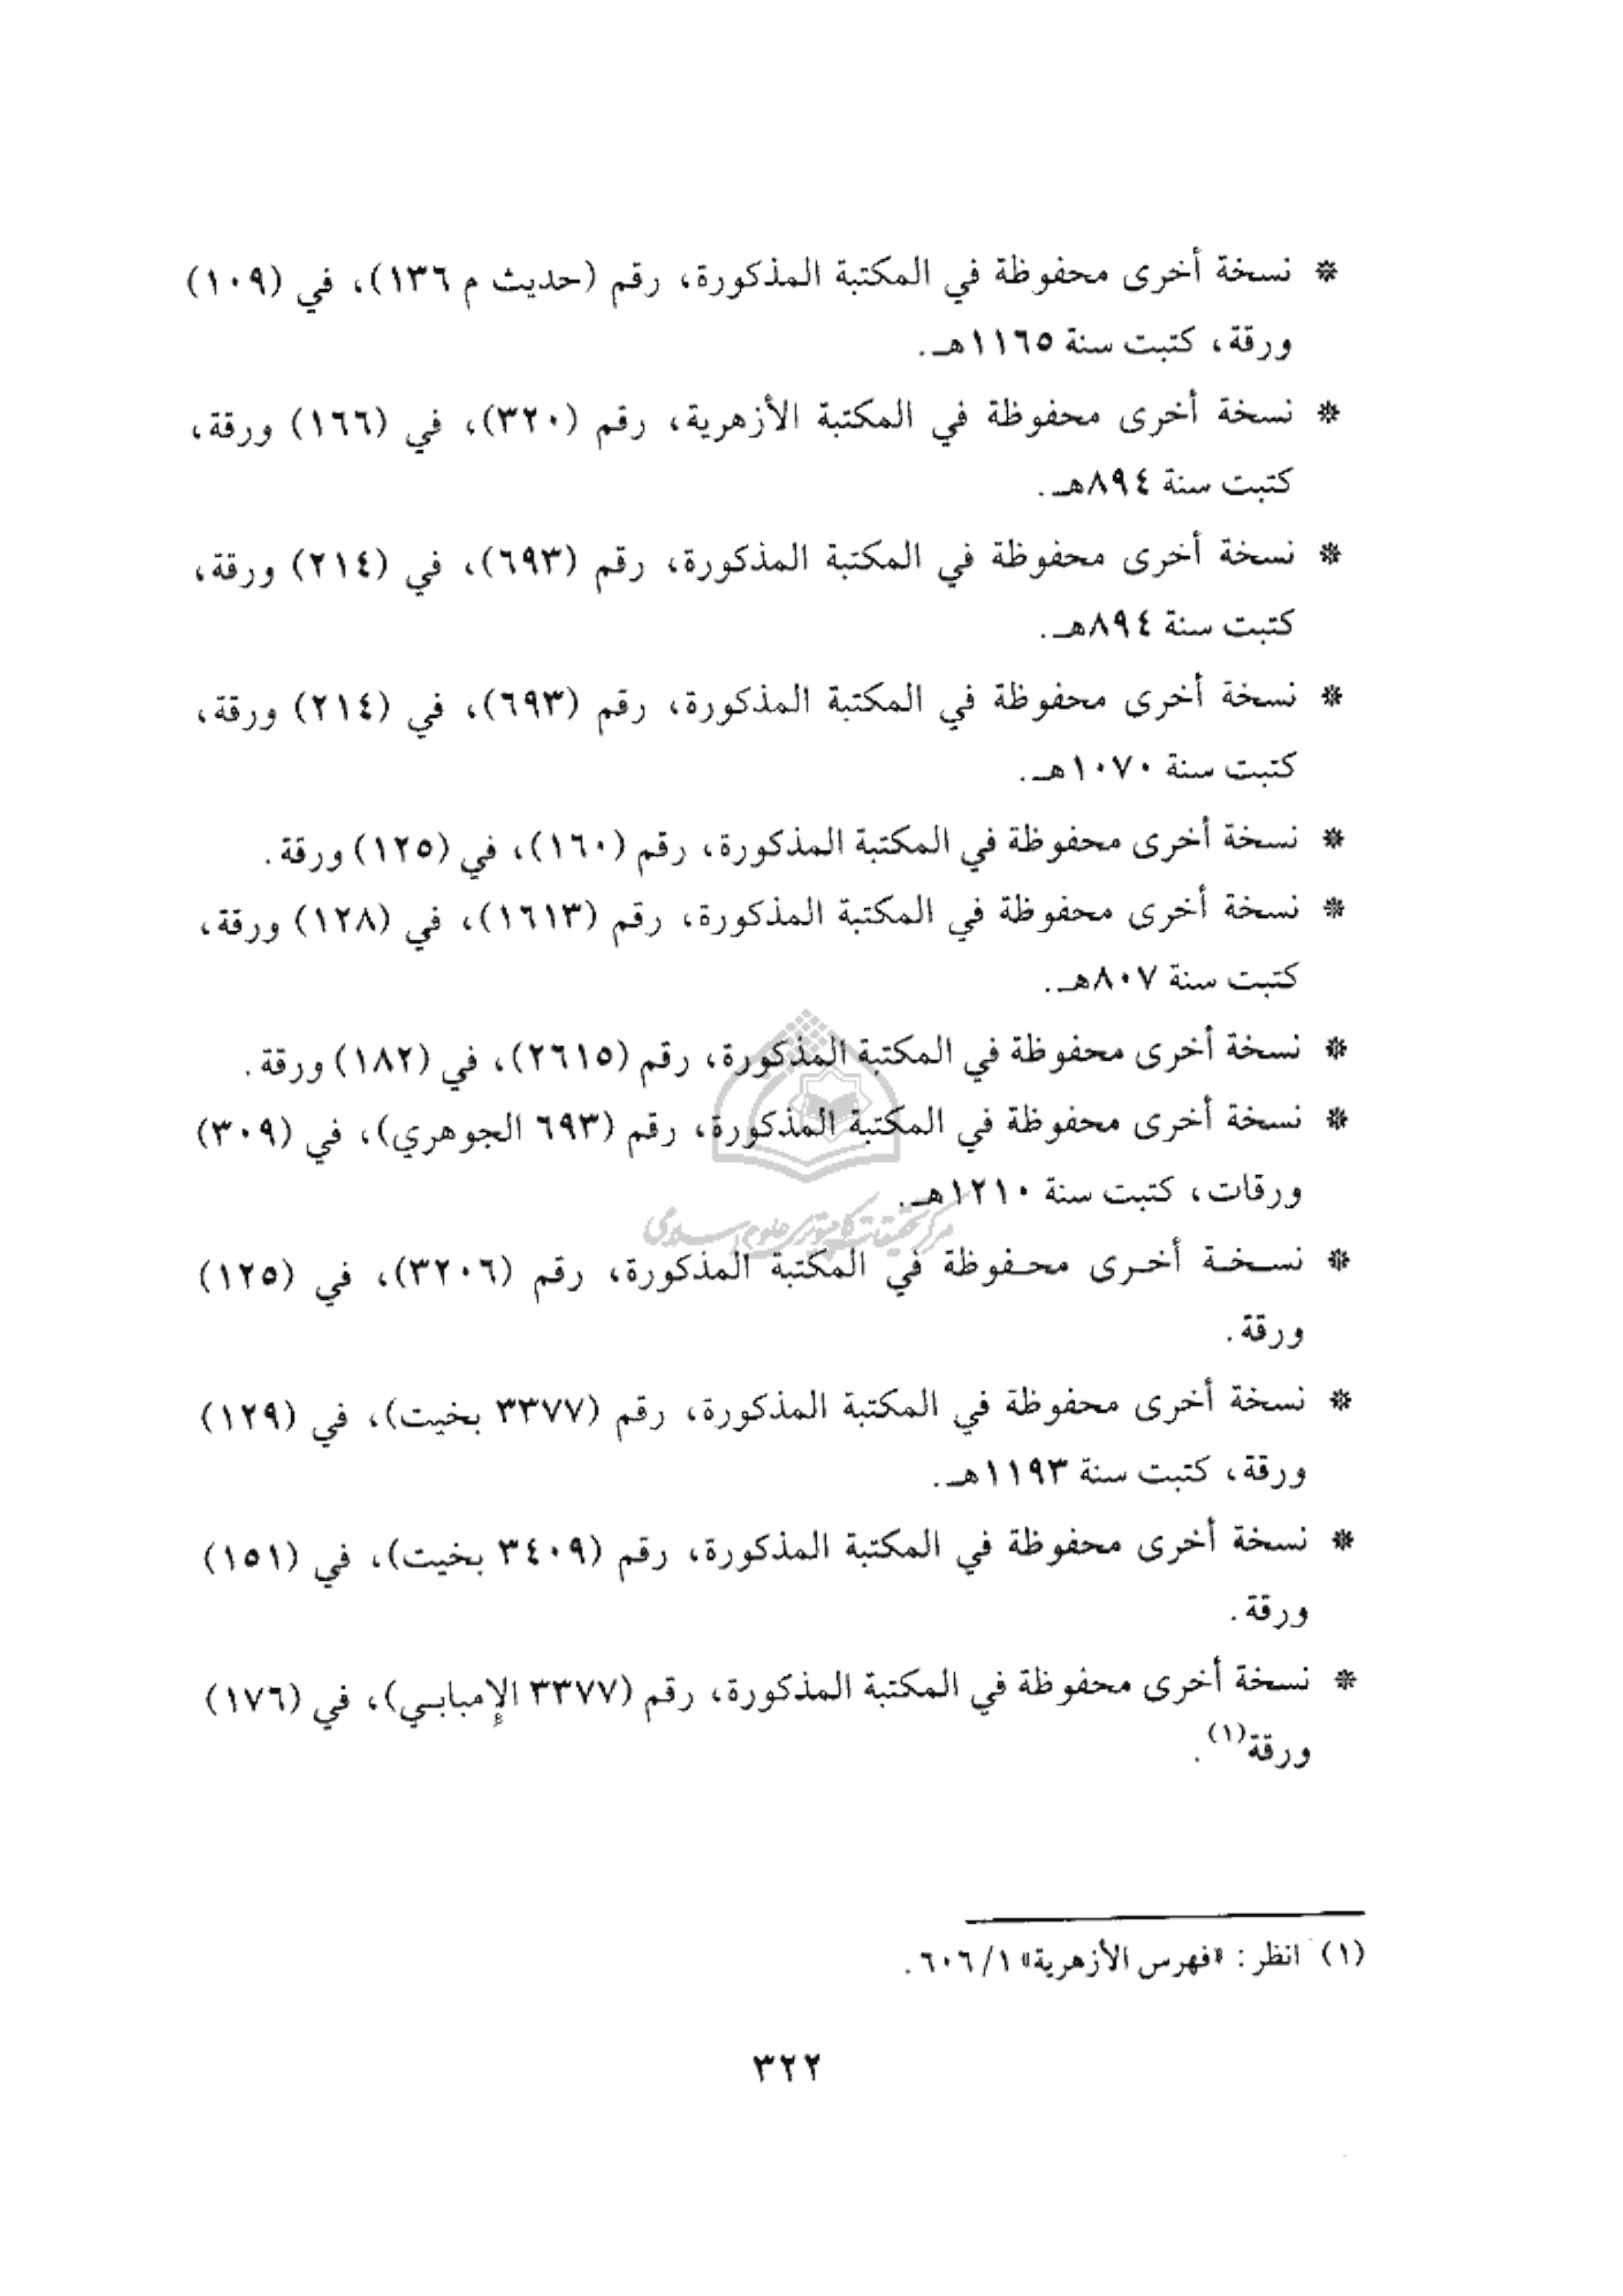 * نسخة أخرى محفوظة في المكتبة المذكورة، رقم (حديث م ١٣٦)، في (١٠٩)
ورقة، كتبت سنة ١١٦٥هـ.
* نسخة أخرى محفوظة في المكتبة الأزهرية، رقم (٣٢٠)، في (١٦٦) ورقة،
كتبت سنة ٨٩٤هـ.
* نسخة أخرى محفوظة في المكتبة المذكورة، رقم (٦٩٣)، في (٢١٤) ورقة،
كتبت سنة ٨٩٤هـ.
* نسخة أخرى محفوظة في المكتبة المذكورة، رقم (٦٩٣)، في (٢١٤) ورقة،
كتبت سنة ١٠٧٠هـ.
* نسخة أخرى محفوظة في المكتبة المذكورة، رقم (١٦٠)، في (١٢٥) ورقة.
* نسخة أخرى محفوظة في المكتبة المذكورة، رقم (١٦١٣)، في (١٢٨) ورقة،
كتبت سنة ٨٠٧هـ.
* نسخة أخرى محفوظة في المكتبة المذكورة، رقم (٢٦١٥)، في (١٨٢) ورقة.
* نسخة أخرى محفوظة في المكتبة المذكورة، رقم (٦٩٣ الجوهري)، في (٣٠٩)
ورقات، كتبت سنة ١٢١٠هـ.
مركز تحقيقات كامپيوتري علوم اسلامي
* نسخة أخرى محفوظة في المكتبة المذكورة، رقم (٣٢٠٦)، في (١٢٥)
ورقة.
* نسخة أخرى محفوظة في المكتبة المذكورة، رقم (٣٣٧٧ بخيت)، في (١٢٩)
ورقة، كتبت سنة ١١٩٣هـ.
* نسخة أخرى محفوظة في المكتبة المذكورة، رقم (٣٤٠٩ بخيت)، في (١٥١)
ورقة.
* نسخة أخرى محفوظة في المكتبة المذكورة، رقم (٣٣٧٧ الإمبابي)، في (١٧٦)
ورقة(١).
(١) انظر: «فهرس الأزهرية» ٦٠٦/١.
٣٢٢